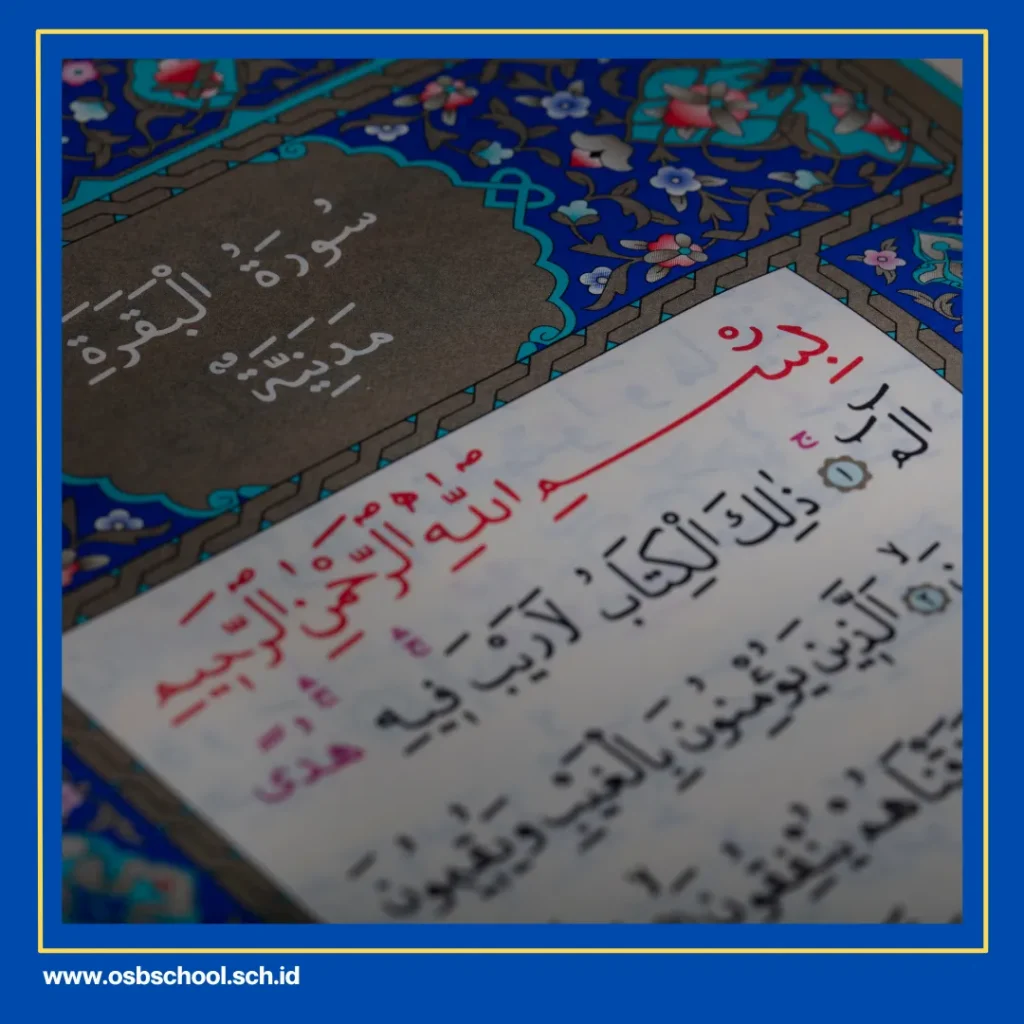 سُورَةُ الْبَقَرَةِ
مَدَنِيَّةٌ
بِسْمِ اللّٰهِ الرَّحْمٰنِ الرَّحِيمِ
الٓمٓ ۝١ ذٰلِكَ الْكِتَابُ لَارَيْبَ فِيهِ هُدًى
۝٢ اَلَّذِينَ يُؤْمِنُونَ بِالْغَيْبِ وَيُقِيمُونَ
يُنْفِقُونَ
www.osbschool.sch.id